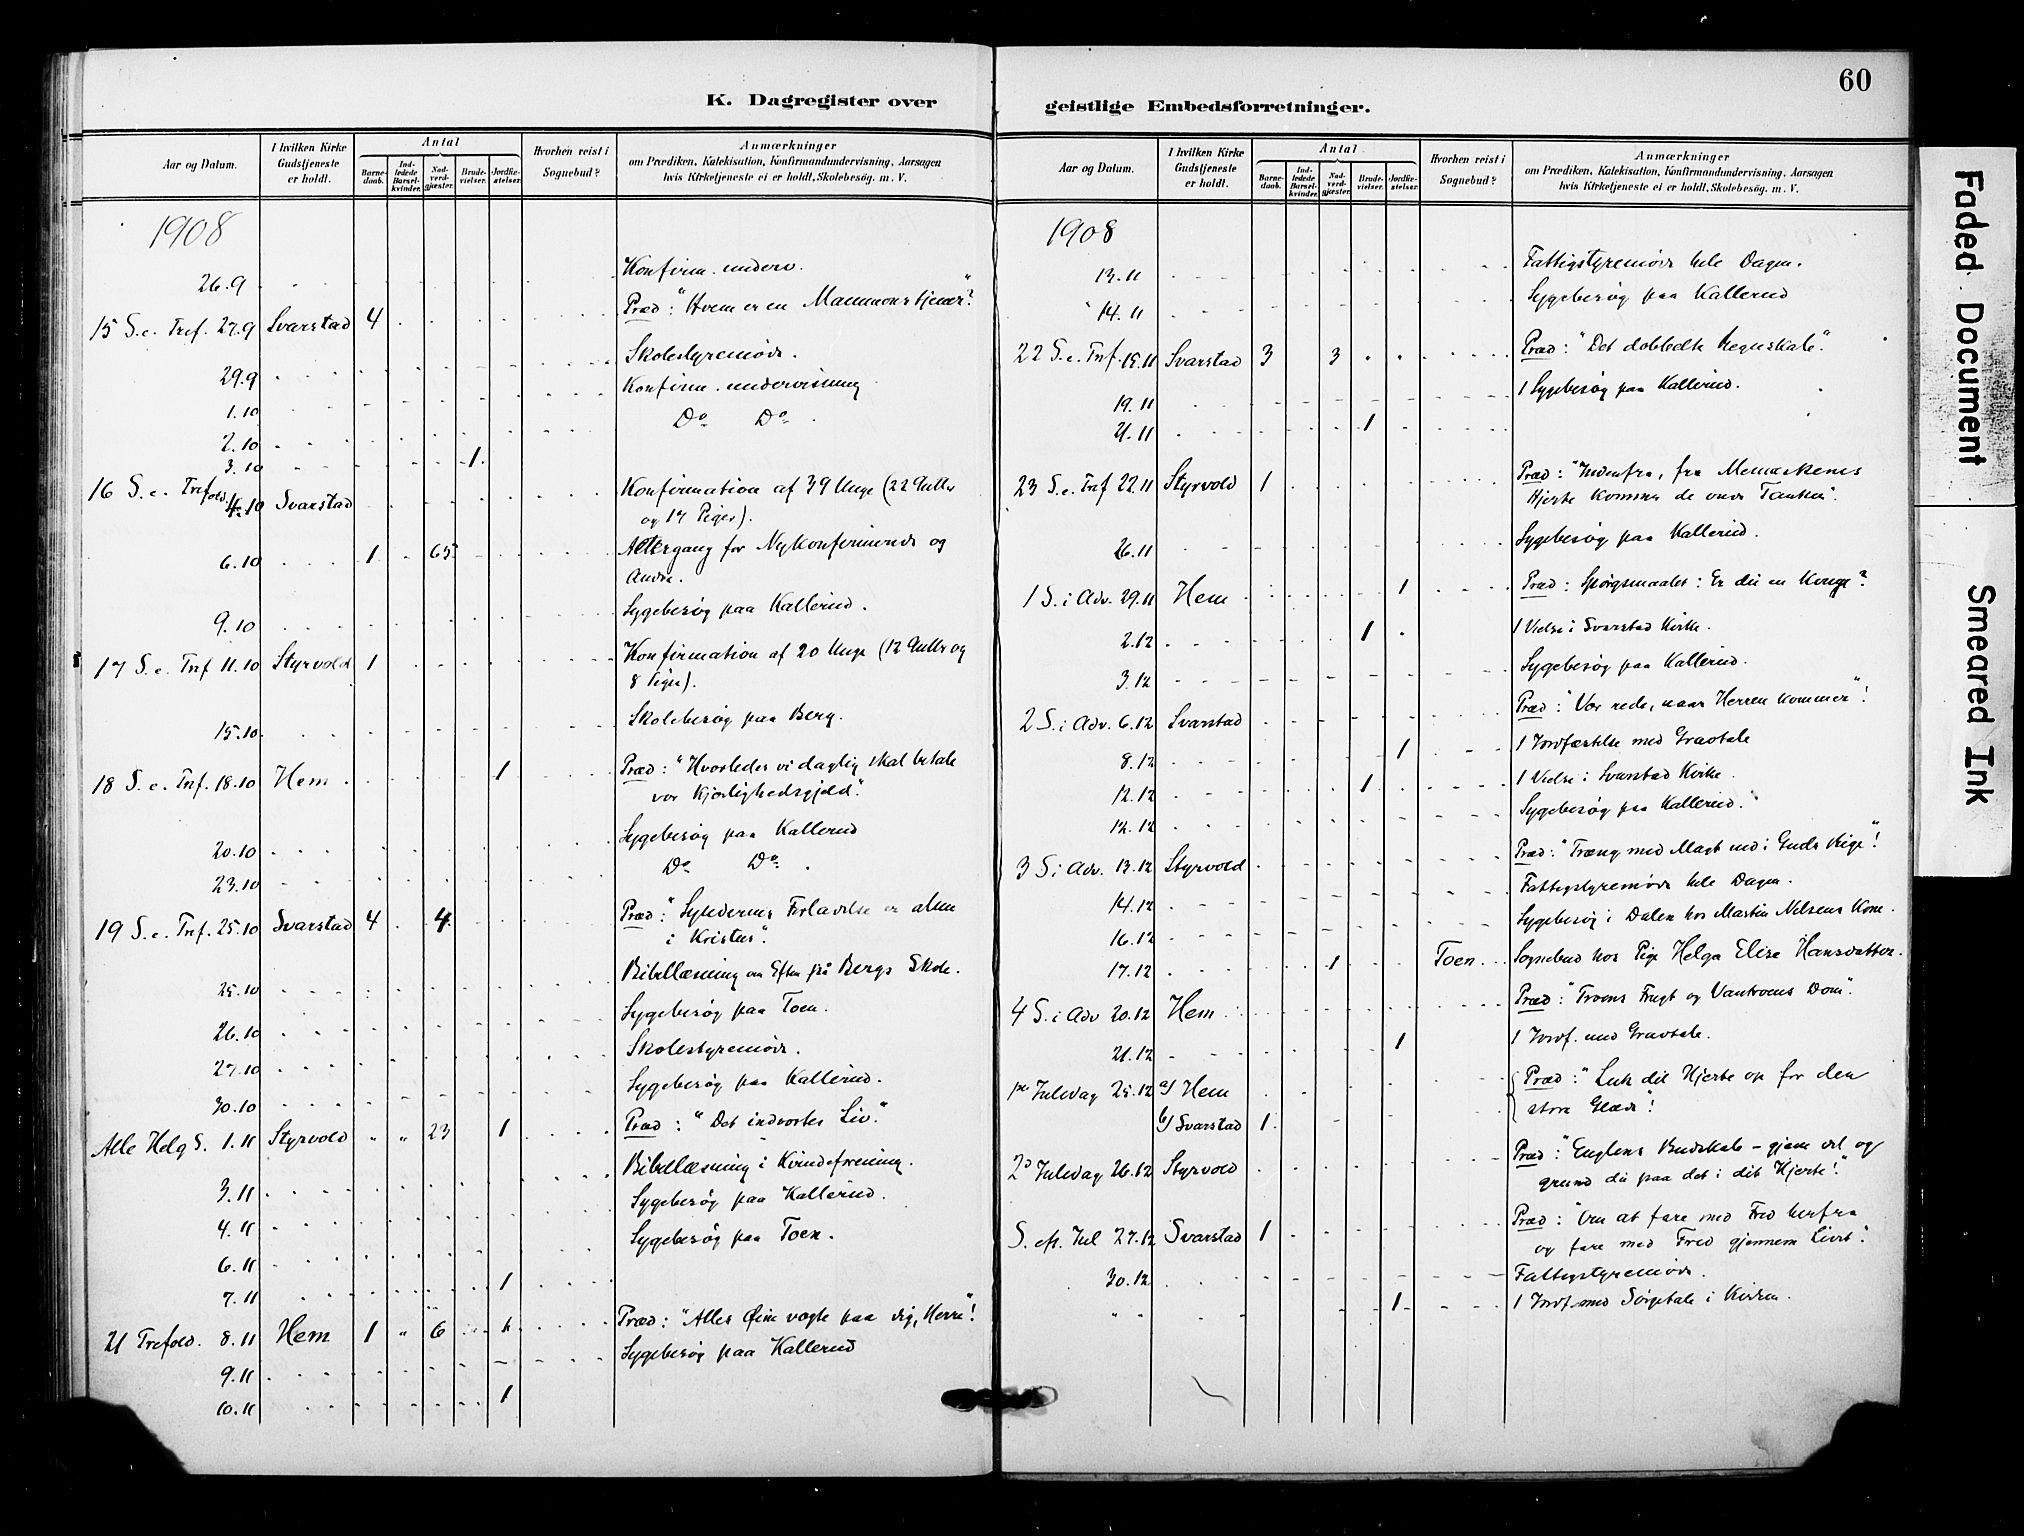 60
K. Dagregister over
geistlige Embedsforretninger.
Aar og Datum.
I hvilken Kirke Gudstjeneste er holdt.
Antal
Barne-daab.
Ind-ledede Barsel-kvinder.
Nad-verd-gjæster.
Brude-vielser.
Jordfæ-stelser.
Hvorhen reist i Sognebud?
Anmærkninger
om Prædiken, Katekisation, Konfirmandundervisning, Aarsagen
hvis Kirketjeneste ei er holdt, Skolebesøg. m. V.
1908
26.9 Konfirm. underv.
15 S. e. Tref. 27.9 Svarstad 4 Præd: "Hvem er en Mammonstjener?"
29.9 Skolestyremøde.
1.10 Konfirm. undervisning
2.10 Do Do
3.10 1
16 S. e. Trefold. 4.10 Svarstad Konfirmation af 39 Unge (22 Gutter
og 17 Piger).
6.10 1 65 Altergang for Nykonfirmerede og
Andre.
9.10 Sygebesøg paa Kallerud.
17 S. e. Tref 11.10 Styrvold 1 Konfirmation af 20 Unge (12 Gutter og
8 Piger).
15.10 Skolebesøg paa Berg.
18 S. e. Tref. 18.10 Hem 1 Præd: "Hvorledes vi daglig skal betale
vor Kjærlighedsgjeld."
20.10 Sygebesøg paa Kallerud
23.10 Do Do
19 S. e. Tref. 25.10 Svarstad 4 4 Præd: "Syndernes Forladelse er alene
i Kristus".
25.10 Bibellæsning om Eftm på Bergs Skole.
26.10 Sygebesøg paa Toen.
27.10 Skolestyremøde.
30.10 Sygebesøg paa Kallerud.
Alle Helg S. 1.11 Styrvold " " 23 1 Præd: "Det indvortes Liv."
3.11 Bibellæsning i Kvindeforening.
4.11 Sygebesøg paa Kallerud.
6.11 Sygebesøg paa Toen.
7.11 1
21 Trefold. 8.11 Hem 1 " 6 Præd: "Alles Øine vogte paa dig, Herre"!
9.11 Sygebesøg paa Kallerud
10.11 1
Aar og Datum.
I hvilken Kirke Gudstjeneste er holdt.
Antal
Barne-daab.
Ind-ledede Barsel-kvinder.
Nad-verd-gjæster.
Brude-vielser.
Jordfæ-stelser.
Hvorhen reist i Sognebud?
Anmærkninger
om Prædiken, Katekisation, Konfirmandundervisning, Aarsagen
hvis Kirketjeneste ei er holdt, Skolebesøg. m. V.
1908
13.11 Fattigstyremøde hele Dagen.
14.11 Sygebesøg paa Kallerud
22 S. e. Tref. 15.11 Svarstad 3 3 Præd: "Det dobbelte Regnskab."
19.11 1 Sygebesøg paa Kallerud.
21.11 1
23 S. e. Tref 22.11 Styrvold 1 Præd: "Indenfra, fra Menneskenes
Hjerte kommer de onde Tanker".
26.11 Sygebesøg paa Kallerud.
1 S. i Adv. 29.11 Hem 1 Præd: Spørgsmaalet: Er du en Konge?
2.12 1 1 Vielse i Svarstad Kirke.
3.12 Sygebesøg paa Kallerud.
2 S. i Adv. 6.12 Svarstad Præd: "Vær rede, naar Herren kommer"!
8.12 1 1 Jordfæstelse med Gravtale
12.12 1 1 Vielse i Svarstad Kirke.
12.12 Sygebesøg paa Kallerud.
3 S. i Adv. 13.12 Styrvold Præd: "Træng med Magt ind i Guds Rige"!
14.12 Fattigstyremøde hele Dagen.
16.12 Sygebesøg i Dalen hos Martin Nelsens Kone.
17.12 1 Toen Sognebud hos Pige Helga Elise Hansdatter.
4 S. i Adv 20.12 Hem Præd: "Troens Frugt og Vantroens Dom".
21.12 1 1 Jordf. med Gravtale.
1ste Juledag 25.12 a/ Hem Præd: "Luk dit Hjerte op for den
store Glæde"!
b/ Svarstad 1
2d Juledag 26.12 Styrvold Præd: "Englens Budskab – gjem det og
grund du paa det i dit Hjerte!"
S. eft. Jul 27.12 Svarstad 1 Præd: "Om at fare med Fred herfra
og fare med Fred gjennem Livet".
30.12 Fattigstyremøde.
" " 1 1 Jordf. med Sørgetale i Kirken.
Faded Document
Smeared Ink